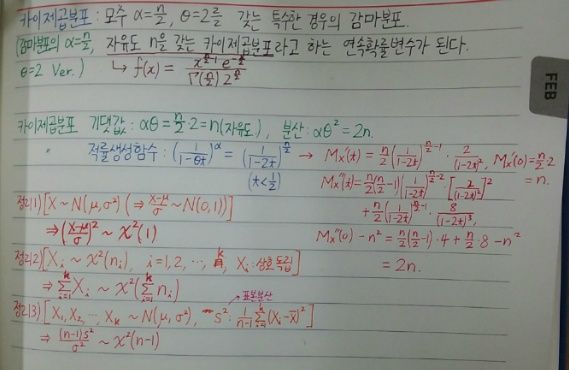 카이제곱분포 : 모수 α=n/2, θ=2를 갖는 특수한 경우의 감마분포.
(감마분포의 α=n/2, 자유도 n을 갖는 카이제곱분포라고 하는 연속확률변수가 된다.
θ=2 Ver.) ↳ f(x) = x^(n/2-1) e^(-x/2) / Γ(n/2) 2^(n/2)
FEB
카이제곱분포 기댓값 : αθ = n/2·2 = n(자유도), 분산 : αθ² = 2n.
" 적률생성함수 : (1/(1-θt))^α = (1/(1-2t))^(n/2) → Mx'(t) = n/2 (1/(1-2t))^(n/2-1) · 2/(1-2t)², Mx'(0) = n/2·2
(t<1/2) = n.
Mx''(t) = n/2(n/2-1)(1/(1-2t))^(n/2-2) · [2/(1-2t)²]²
+ n/2 (1/(1-2t))^(n/2-1) · 8/(1-2t)³,
Mx''(0) - n² = n/2(n/2-1)·4 + n/2·8 - n²
= 2n.
정리1) [X ~ N(μ, σ²) (⇒ (X-μ)/σ ~ N(0,1))]
⇒ ((X-μ)/σ)² ~ χ²(1)
정리2) [X_i ~ χ²(n_i), i=1,2, ⋯, k, X_i : 상호독립]
⇒ Σ_(i=1)^k X_i ~ χ²(Σ_(i=1)^k n_i)
표본분산
정리3) [X₁, X₂, ⋯, X_k ~ N(μ, σ²), S² : 1/(n-1) Σ_(i=1)^k (X_i - X̄)²]
⇒ (n-1)S²/σ² ~ χ²(n-1)